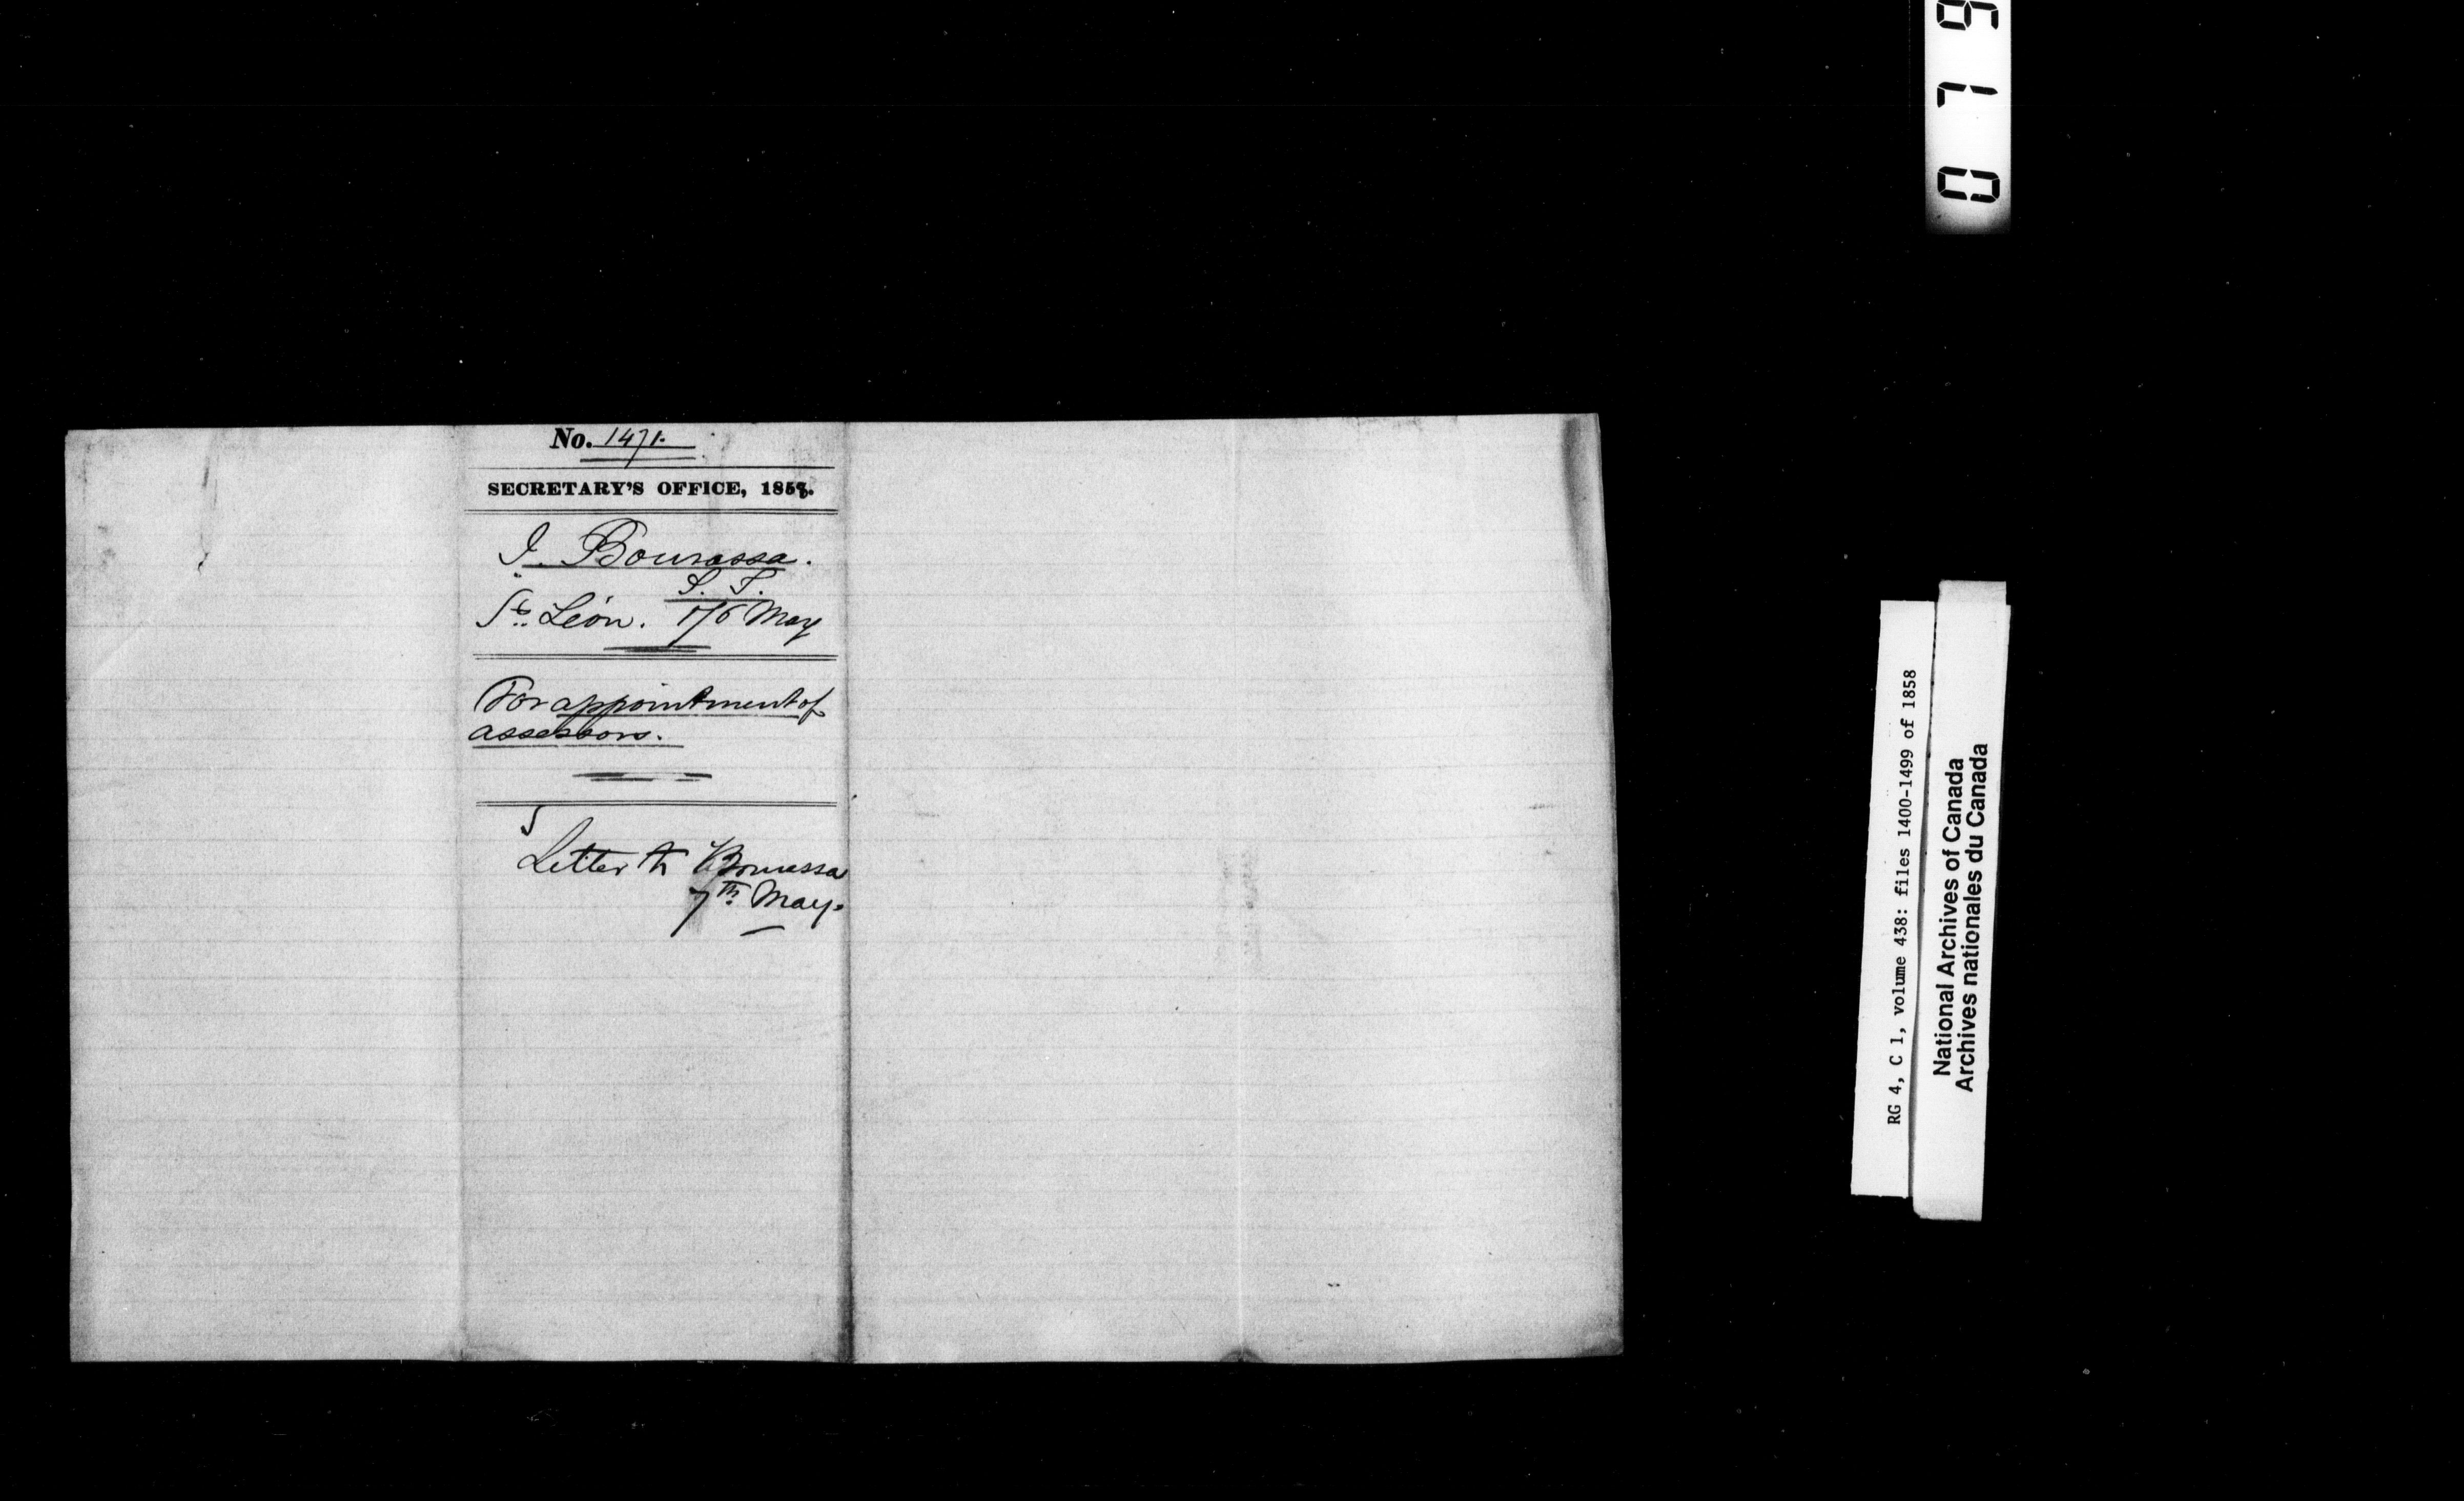 No. 1471.
SECRETARY'S OFFICE, 1858.
I. Bourassa.
S. T.
St. Léon. 1/6 May
For appointment of
assessors.
Letter to Bourassa
7th May.
0 7 9
RG 4, C 1, volume 438: files 1400-1499 of 1858
National Archives of Canada
Archives nationales du Canada